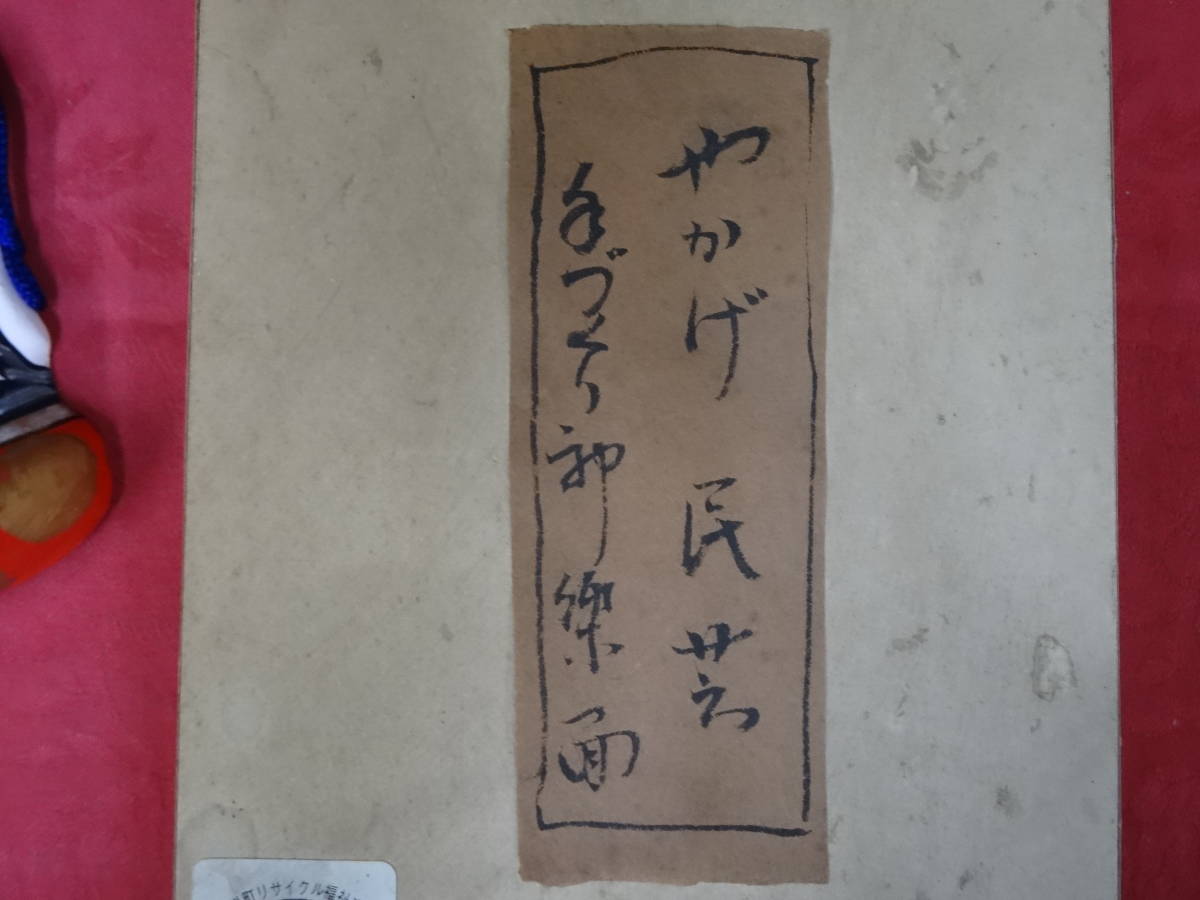 やかげ 民芸
手づくり神楽面
町リサイクル福祉